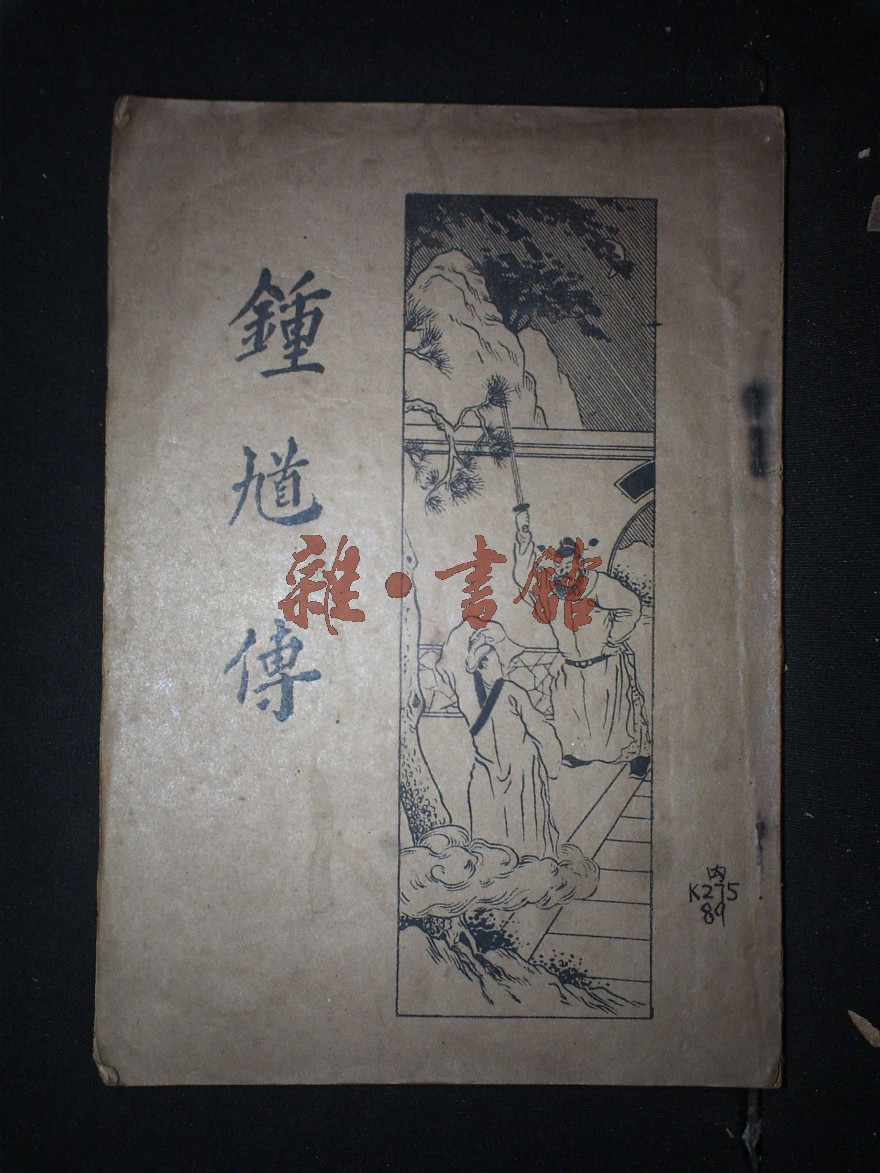 鍾馗傳
雜·書館
内
K275
89